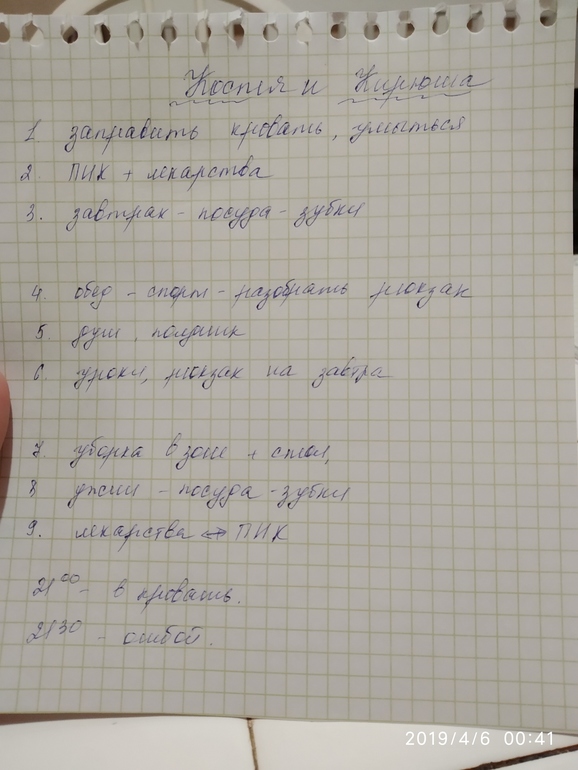 Костя и Кирюша
1. заправить кровать, умыться
2. ПИК + лекарства
3. завтрак - посуда - зубки
4. обед - спорт - разобрать рюкзак
5. душ, полдник
6. уроки, рюкзак на завтра
7. уборка в зоне + стол,
8 ужин - посуда - зубки
9. лекарства <-> ПИК
21 00 - в кровать.
21 30 - отбой.
2019/4/6 00:41